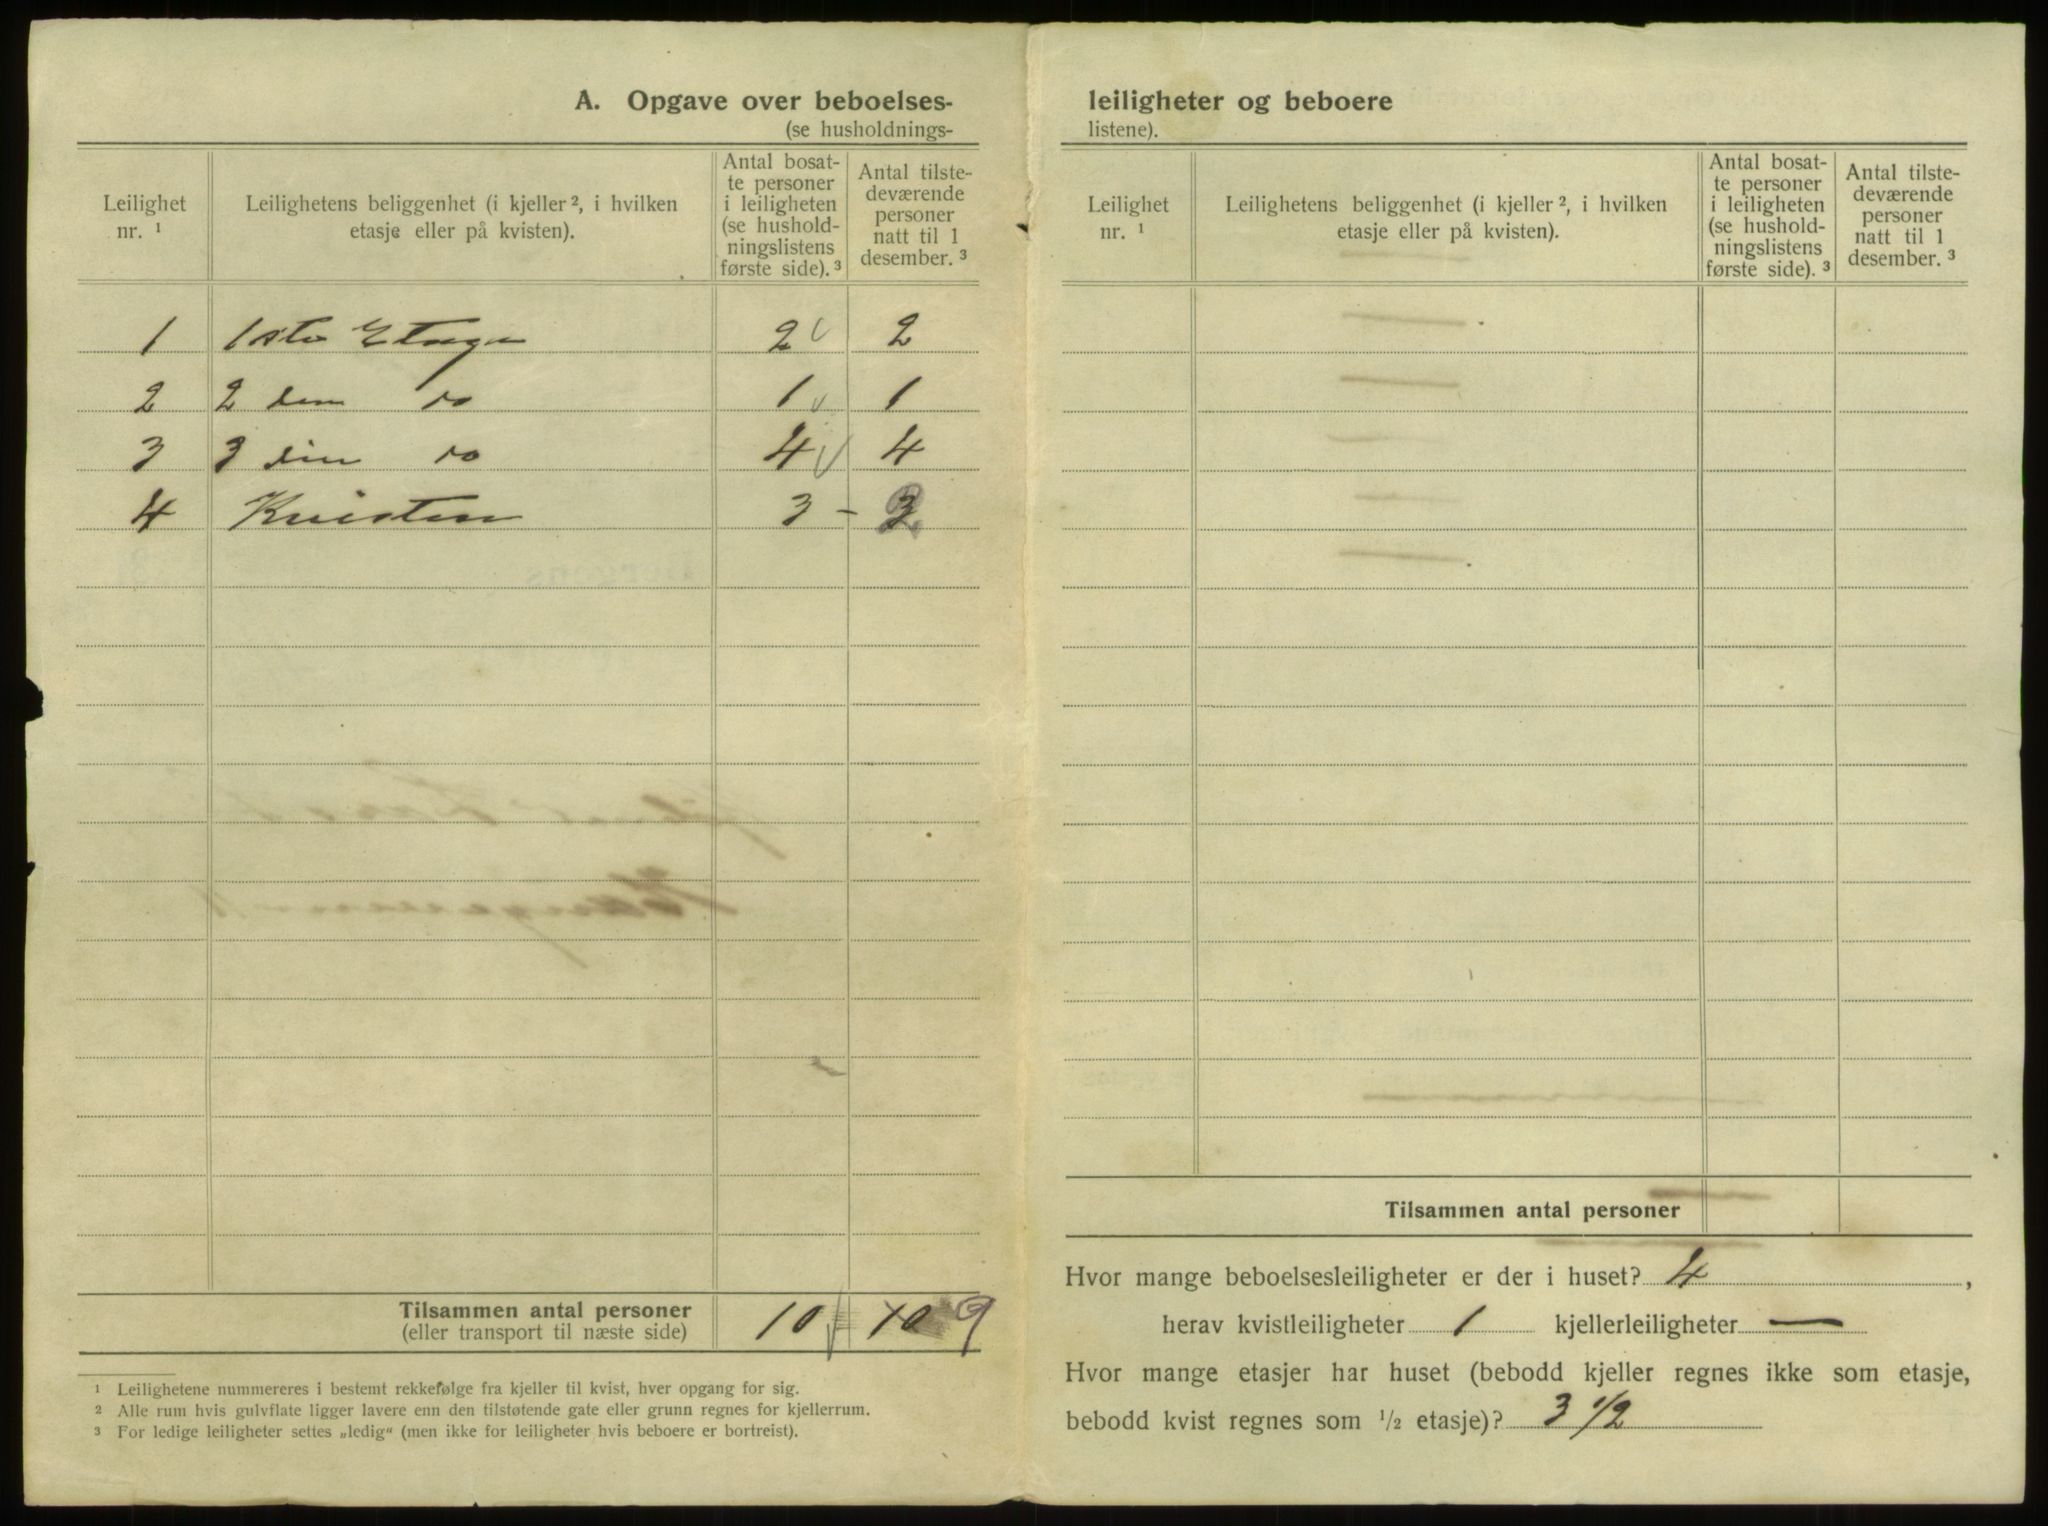 A. Opgave over beboelses-
(se husholdnings-
Leilighet nr. ¹
Leilighetens beliggenhet (i kjeller ², i hvilken etasje eller på kvisten).
Antal bosat-
te personer
i leiligheten
(se hushold-
ningslistens
første side). ³
Antal tilste-
deværende
personer
natt til 1
desember. ³
1 1ste Etage 2 2
2 2 den do 1 1
3 3 die do 4 4
4 Kvisten 3 - 3 2
Tilsammen antal personer
(eller transport til næste side)
10 10 9
¹ Leilighetene nummereres i bestemt rekkefølge fra kjeller til kvist, hver opgang for sig.
² Alle rum hvis gulvflate ligger lavere enn den tilstøtende gate eller grunn regnes for kjellerrum.
³ For ledige leiligheter settes „ledig“ (men ikke for leiligheter hvis beboere er bortreist).
leiligheter og beboere
listene).
Leilighet nr. ¹
Leilighetens beliggenhet (i kjeller ², i hvilken etasje eller på kvisten).
Antal bosat-
te personer
i leiligheten
(se hushold-
ningslistens
første side). ³
Antal tilste-
deværende
personer
natt til 1
desember. ³
Tilsammen antal personer
Hvor mange beboelsesleiligheter er der i huset? 4,
herav kvistleiligheter 1 kjellerleiligheter —
Hvor mange etasjer har huset (bebodd kjeller regnes ikke som etasje,
bebodd kvist regnes som ½ etasje)? 3 ½